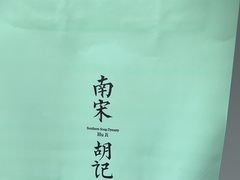 南宋
Southern Song Dynasty
Hu Ji
胡记